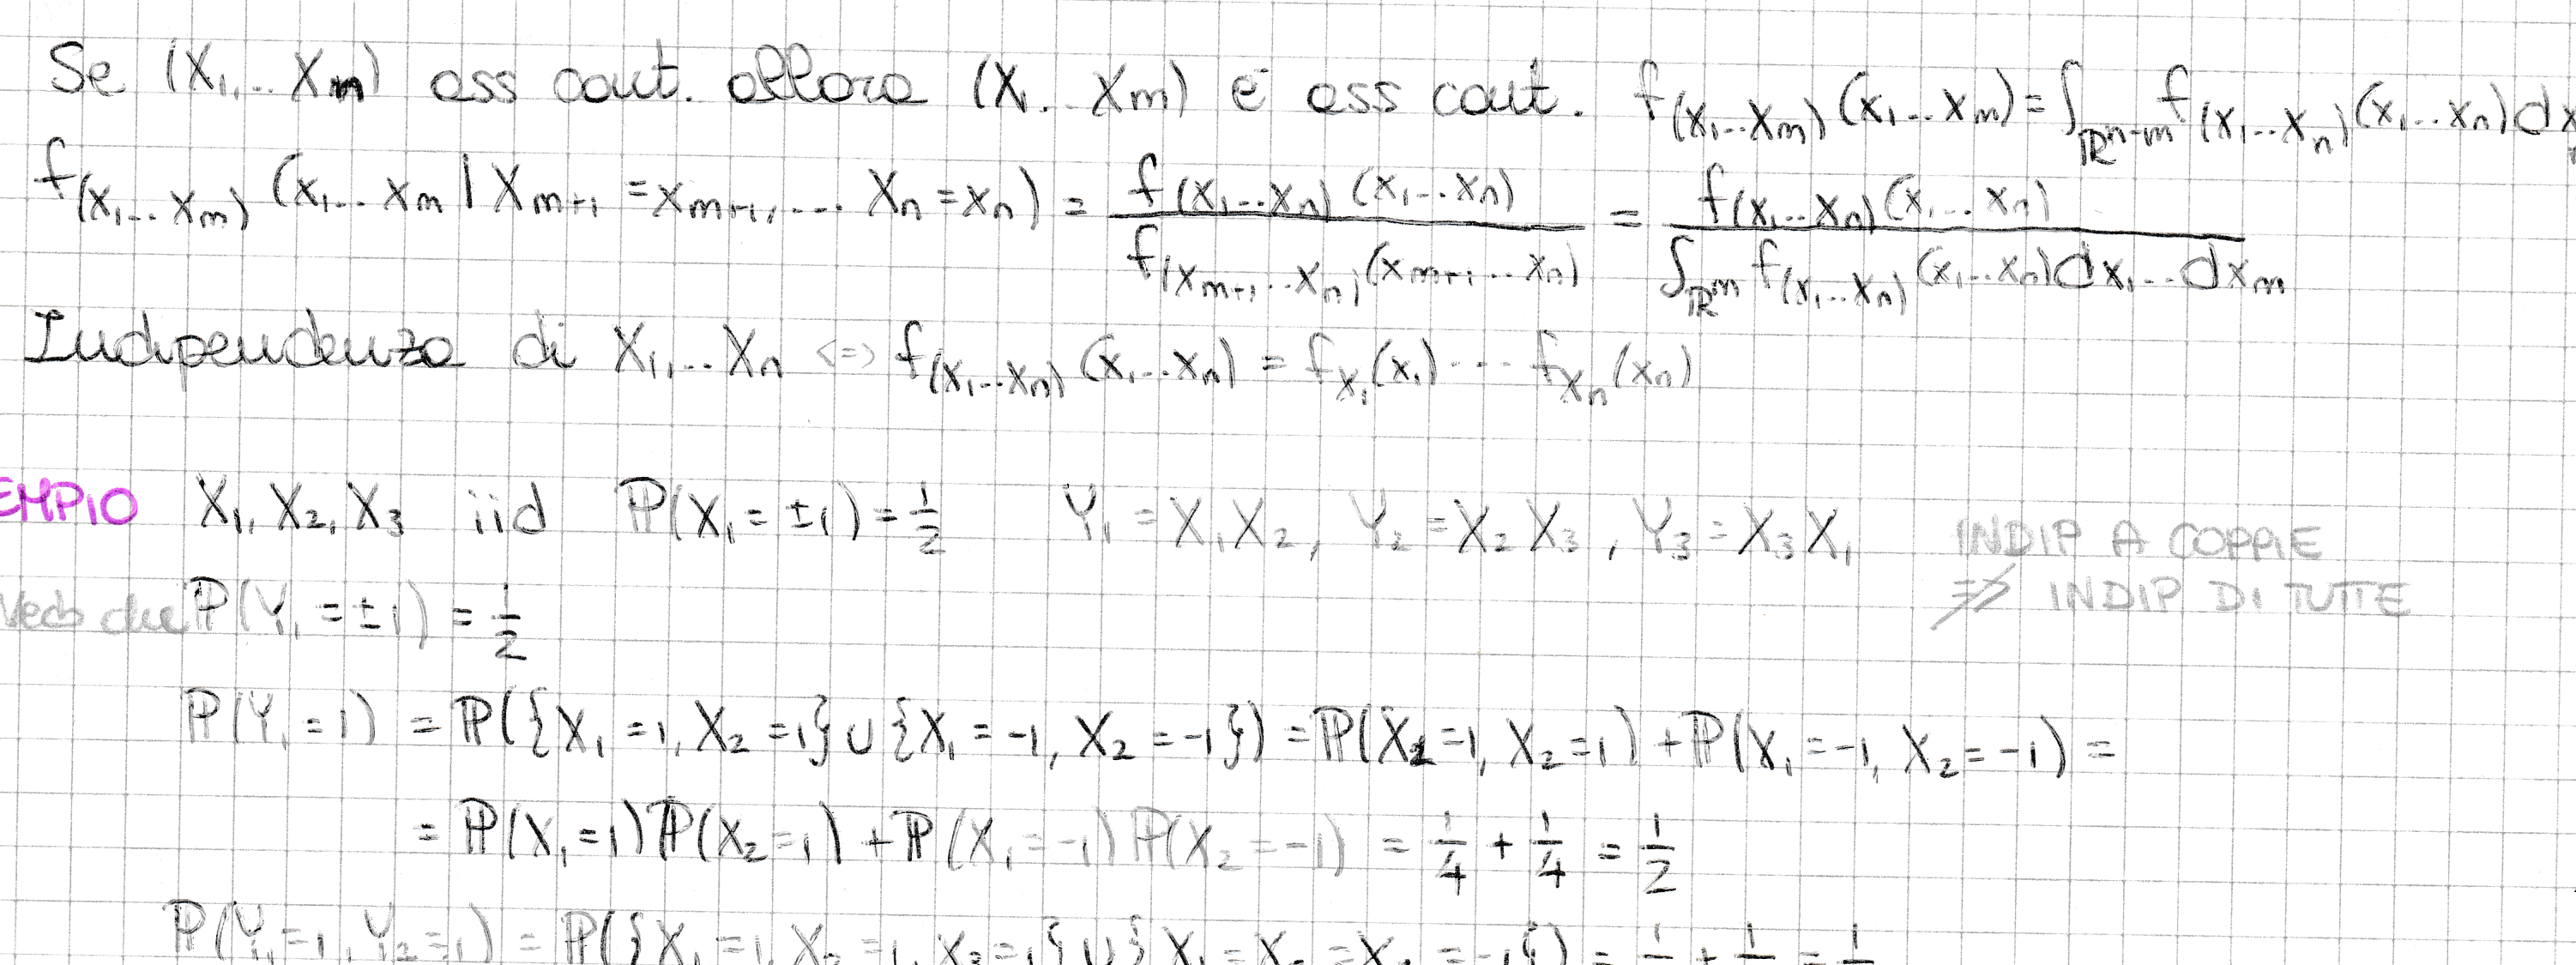 Se (X₁,... Xₙ) ass cont. allora (X₁...Xₘ) è ass cont. f_(X₁...Xₘ)(x₁...xₘ) = ∫_ℝⁿ⁻ᵐ f_(X₁...Xₙ)(x₁...xₙ)dx
f_(X₁...Xₘ)(x₁...xₘ | Xₘ₊₁ = xₘ₊₁,... Xₙ = xₙ) = f_(X₁...Xₙ)(x₁...xₙ) / f_(Xₘ₊₁...Xₙ)(xₘ₊₁...xₙ) = f_(X₁...Xₙ)(x₁...xₙ) / ∫_ℝᵐ f_(X₁...Xₙ)(x₁...xₙ)dx₁...dxₘ
Indipendenza di X₁,... Xₙ <=> f_(X₁...Xₙ)(x₁...xₙ) = f_X₁(x₁) ··· f_Xₙ(xₙ)
EMPIO X₁, X₂, X₃ iid ℙ(X₁ = ±1) = 1/2 Y₁ = X₁X₂, Y₂ = X₂X₃, Y₃ = X₃X₁ INDIP A COPPIE
Vedo che ℙ(Y₁ = ±1) = 1/2 ⇏ INDIP DI TUTTE
ℙ(Y₁ = 1) = ℙ({X₁ = 1, X₂ = 1} ∪ {X₁ = -1, X₂ = -1}) = ℙ(X₁ = 1, X₂ = 1) + ℙ(X₁ = -1, X₂ = -1) =
= ℙ(X₁ = 1)ℙ(X₂ = 1) + ℙ(X₁ = -1)ℙ(X₂ = -1) = 1/4 + 1/4 = 1/2
ℙ(Y₁ = 1, Y₂ = 1) = ℙ({X₁ = 1, X₂ = 1, X₃ = 1} ∪ {X₁ = X₂ = X₃ = -1}) =